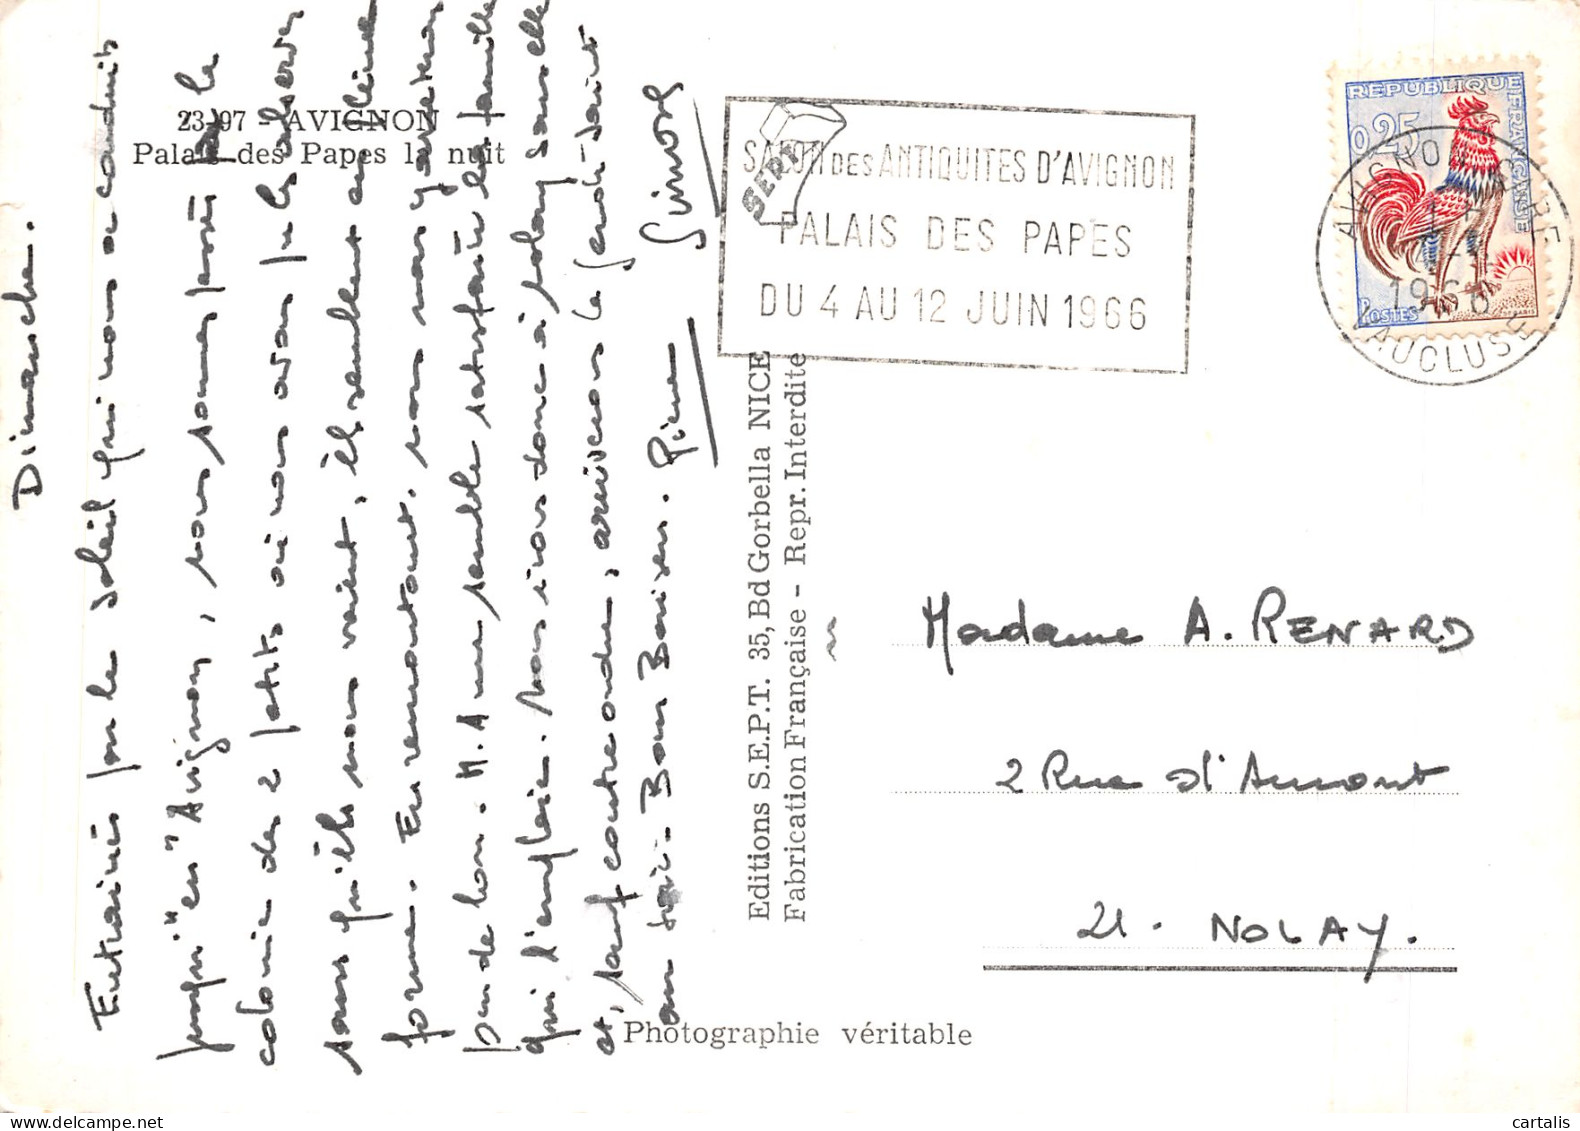 23-97 - AVIGNON
Palais des Papes la nuit
Dimanche.
Entrainés par le soleil qui nous a conduits
jusqu'"en" Avignon, nous sommes passés à la
colonie des 2 petits où nous avons pu les observer
sans qu'ils nous voient, ils semblent en pleine
forme. En remontant, nous nous y arrêterons
pas de bon. M.A me semble satisfaite de la famille
qui l'emploie. Nous irons donc à Nolay sans elle
et, sauf contre ordre, arriverons le samedi-saint
au soir. Bons Baisers. Pierre Simone
SALON DES ANTIQUITES D'AVIGNON
PALAIS DES PAPES
DU 4 AU 12 JUIN 1966
SEPT
REPUBLIQUE FRANÇAISE
0,25
POSTES
AVIGNON GARE
1966
VAUCLUSE
Editions S.E.P.T. 35, Bd Gorbella NICE
Fabrication Française - Repr. Interdite
Madame A. RENARD
2 Rue d'Aumont
21. NOLAY.
Photographie véritable
cartalis